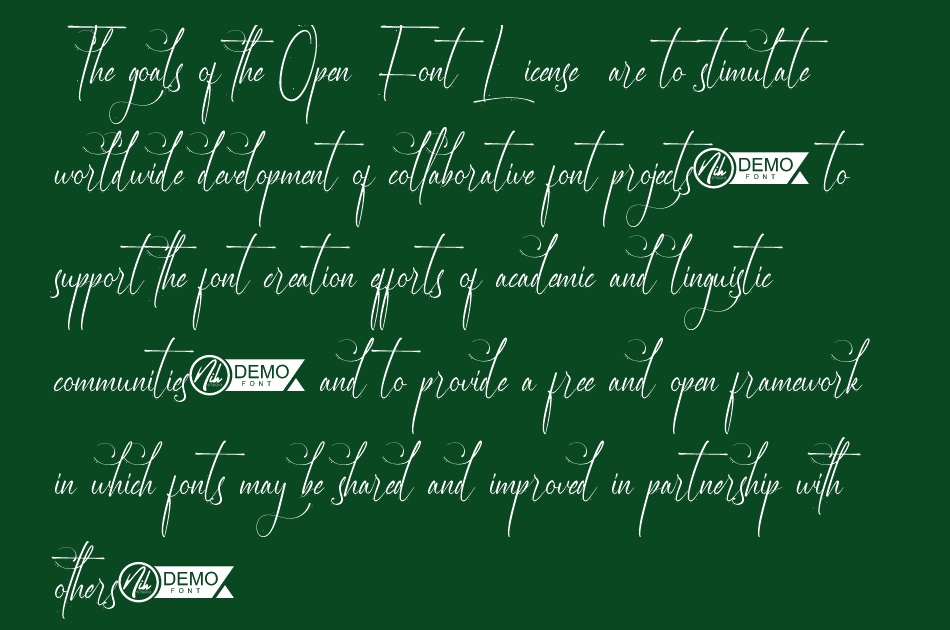 The goals of the Open Font License are to stimulate
worldwide development of collaborative font projects Nih DEMO FONT to
support the font creation efforts of academic and linguistic
communities Nih DEMO FONT and to provide a free and open framework
in which fonts may be shared and improved in partnership with
others Nih DEMO FONT